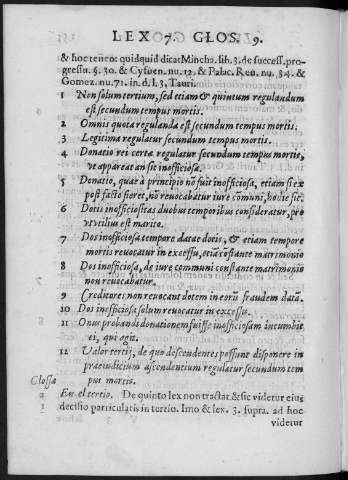 LEX 7. GLOS. 9.
& hoc teneo: quidquid dicat Mincha. lib. 3. de success. pro-
gressu. §. 30. & Cyfuen. nu. 12. & Palac. Reu. nu. 34. &
Gomez. nu. 71. in. d. l. 3, Tauri.
1 Non solum tertium, sed etiam & quintum regulandum
est secundum tempus mortis.
2 Omnis quota regulanda est secundum tempus mortis.
3 Legitima regulatur secundum tempus mortis.
4 Donatio rei certæ regulatur secundum tempus mortis,
vt appareat an sit inofficiosa.
5 Donatio, quæ à principio nõ fuit inofficiosa, etiam si ex
post facto fieret, nõ reuocabatur iure cõmuni, hodie sic.
6 Dotis inofficiositas duobus temporibus consideratur, pro
vt vtilius est marito.
7 Dos inofficiosa tempore datæ dotis, & etiam tempore
mortis reuocatur in excessu, etiã cõstante matrimonio
8 Dos inofficiosa, de iure cõmuni constante matrimonio
non reuocabatur.
9 Creditores non reuocant dotem in eorũ fraudem datã.
10 Dos inofficiosa solum reuocatur in excessu.
11 Onus probandi donationem fuisse inofficiosam incumbit
ei, qui agit.
12 Valor tertij, de quo descendentes possunt disponere in
præiudicium ascendentium regulatur secundum tem
pus mortis.
Glossa
2 En el tercio. De quinto lex non tractat & sic videtur eius
1 decisio particularis in tertio. Imo & lex. 3. supra. ad hoc
videtur